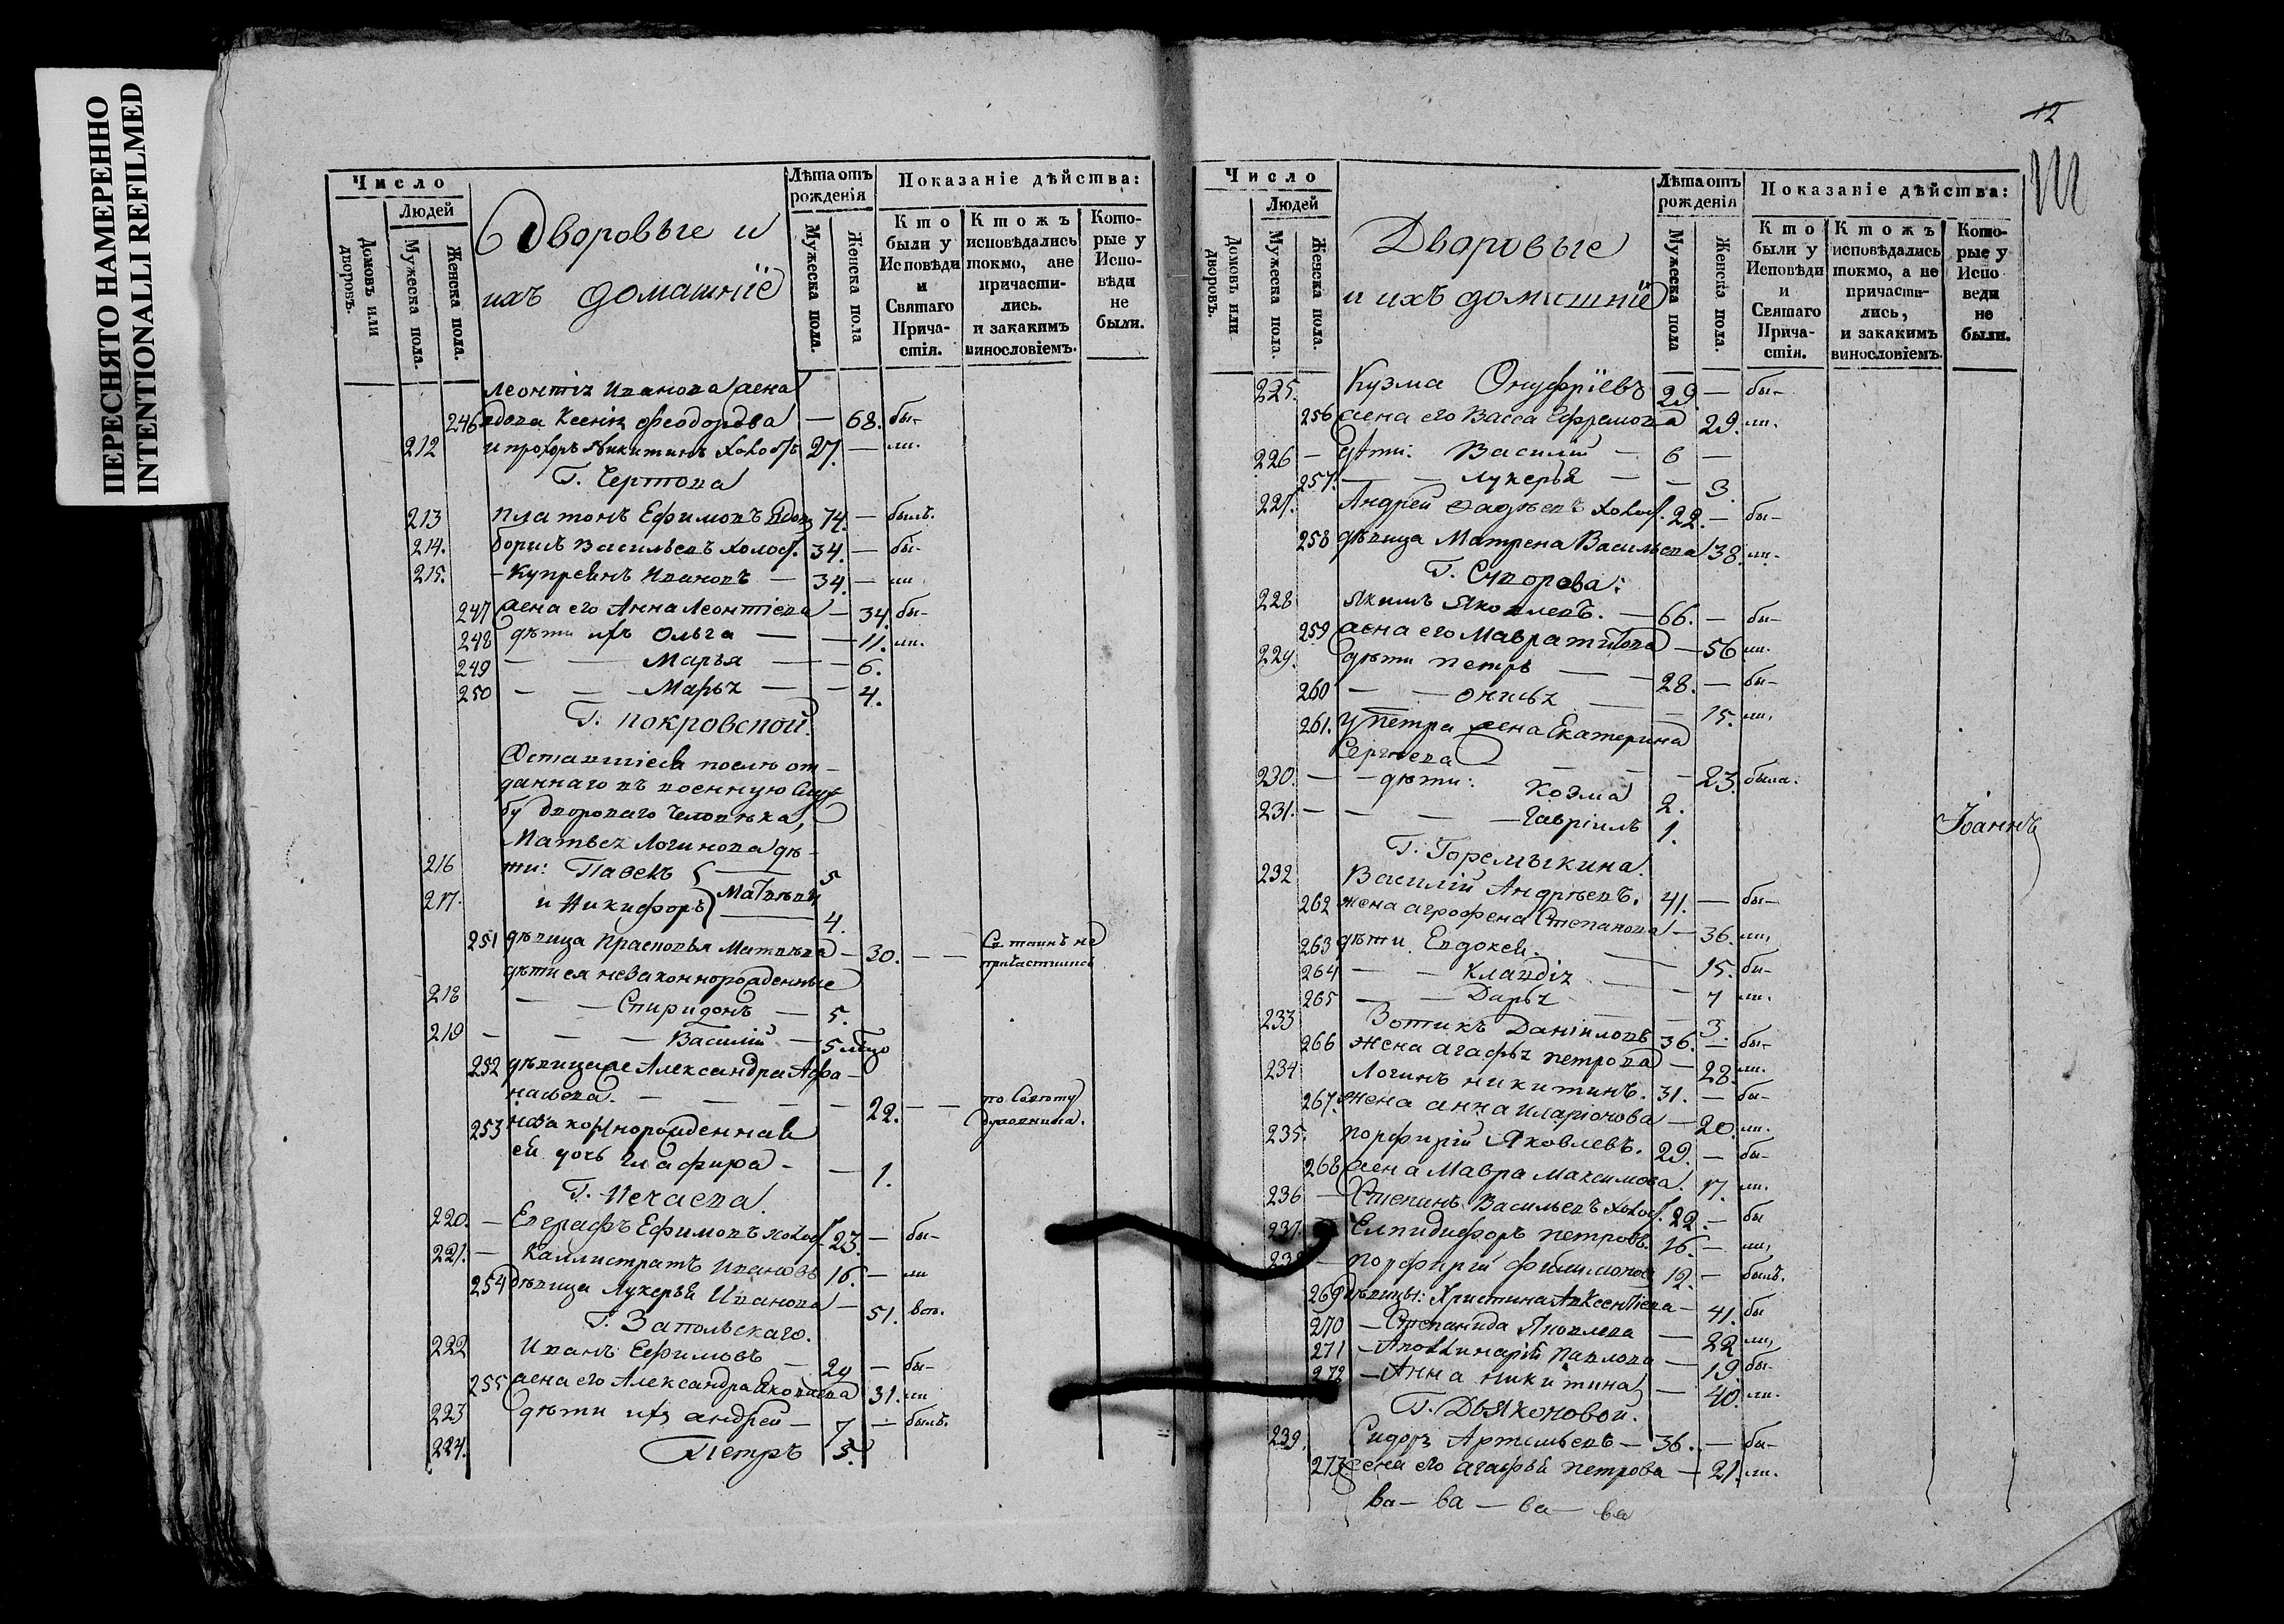 ПЕРЕСНЯТО НАМЕРЕННО
INTENTIONALLI REFILMED
Число
Людей
Домовъ или дворовъ.
Мужеска пола.
Женска пола.
Дворовые и
ихъ домашніе
Лѣта отъ рожденія
Мужеска пола.
Женска пола
Показаніе дѣйства:
Кто были у Исповѣди и Святаго Прича-стія.
Ктожъ исповѣдались токмо, а не причасти-лись. и закакимъ винословіемъ.
Кото-рые у Испо-вѣди не были.
Леонтія Иванова жена
246 вдова Ксенія Феодорова — 68. бы-
212 и прохоръ Никитинъ холос. 27. — ли.
Г. Чертова
213 Платонъ Ефимовъ вдов 74. — былъ.
214. борисъ Васильевъ холос. 34. — бы-
215. - Купреянъ Ивановъ — 34. — ли
247 жена его Анна Леонтіева — 34. бы-
248 дѣти ихъ Ольга — — 11. ли.
249 — — Марья — — 6.
250 — — Марья — — 4.
Г. Покровской.
Оставшіеся послѣ от-
даннаго въ военную служ-
бу двороваго человѣка,
Матвея Логинова дѣ-
216 ти: Павелъ — 5
217. и Никифоръ Матвѣевы — 4.
251 дѣвица Прасковья Матвѣева — 30. — — Св. таинъ не причастились
дѣти ея незаконнорожденные
218 — — Спиридонъ — 5.
219 — — — Василій — 5
252 дѣвица же Александра Афа-
насьева. — — — — 22. — — по совѣту духовника.
253 незаконнорожденная
ей дочь Глафира - — 1.
Г. Нечаева.
220. — Евграфъ Ефимовъ холос. 23. — бы-
221. — Каллистратъ Ивановъ 16. — ли
254 дѣвица Лукерья Иванова — 51.
Г. Запольскаго.
222 Иванъ Ефимовъ — 29 — бы-
255 жена его Александра Яковлева 31. ли
223 дѣти ихъ андрей — 7 — былъ.
224. Петръ 5.
12
Число
Людей
Домовъ или дворовъ.
Мужеска пола.
Женска пола.
Дворовые
и ихъ домашніе
Лѣта отъ рожденія
Мужеска пола
Женска пола.
Показаніе дѣйства:
Кто были у Исповѣди и Святаго Прича-стія.
Ктожъ исповѣдались токмо, а не причасти-лись, и закакимъ винословіемъ.
Кото-рые у Испо веди не были.
225. Кузма Онуфріевъ 29. — бы-
256 жена его Васса Ефремова 29. ли.
226 — дѣти: Василій — 6 —
257. — — Лукерья — — 3.
227. Андрей Фадѣевъ холос. 22. — бы-
258 дѣвица Матрена Васильева 38. ли.
Г. Суворова:
228 Якимъ Яковлевъ. — 66. — бы-
259 жена его Мавра Титова — 56 ли.
229. дѣти Петръ — — 28. — бы-
260 — — Онисья — — 15. ли,
261. У Петра жена Екатерина
Сергѣева — — — 23. была.
230. — — дѣти: Козма 2.
231. — — — Гавріилъ 1.
Іоаннъ
Г. Горемыкина.
232 Василій Андрѣевъ. 41. — бы-
262 жена агрофена Степанова — 36. ли,
263 дѣти Евдокея. — 15. бы-
264 — — Клавдія — 7 ли.
265 — — Дарья — 3.
233 Зотикъ Даніиловъ 36. — бы-
266 жена агафья петрова — 28. ли.
234 Логинъ никитинъ. 31. — бы-
267. жена анна Иларіонова — 20. ли.
235. Порфирій Яковлевъ. 29. — бы-
268 жена Мавра Максимова. 17. ли.
236 — Степанъ Васильевъ холос. 22. — бы
237. Елпидифоръ петровъ. 16. — ли,
238 — порфирій филимоновъ 12. — былъ.
269 дѣвицы: Христина Авксентіева — 41. бы
270 — Степанида Яковлева — 22 ли,
271 — Аполлинарія Павлова — 19 бы-
272 — Анна никитина — 40. ли.
Г. Дьяконовой.
239. Сидоръ Артемьевъ — 36. — бы-
273. жена его агафья петрова — 21. ли.
ва — ва — ва — ва